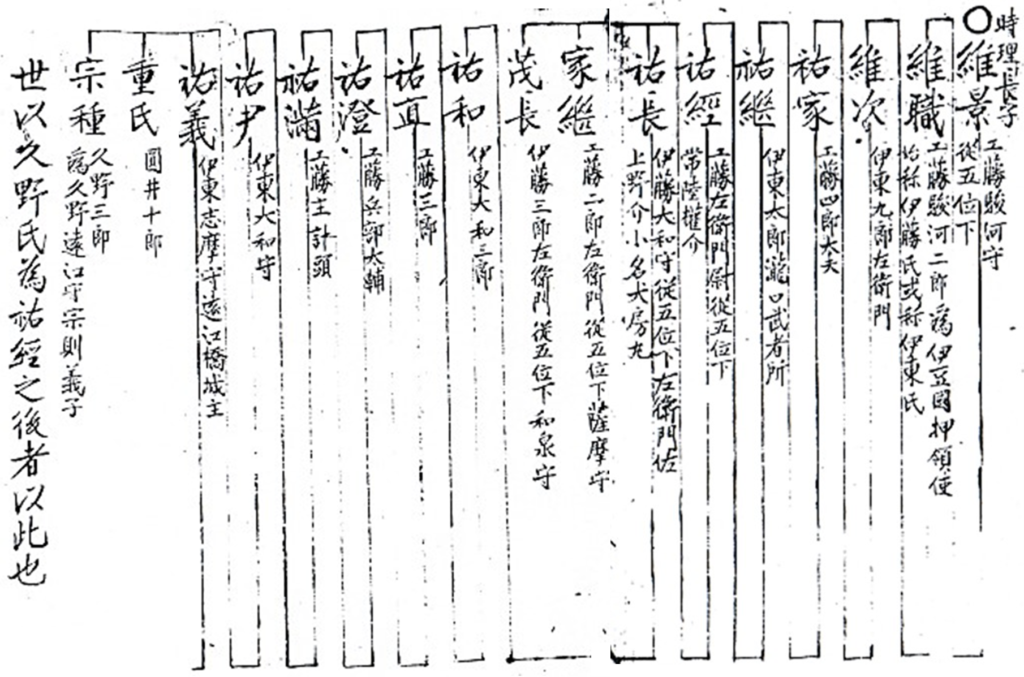 時理長子
維景
工藤駿河守
從五位下
維職
工藤駿河二郎為伊豆國押領使
始称伊藤氏或称伊東氏
維次
伊東九郎左衛門
祐家
工藤四郎大夫
祐継
伊東太郎瀧口武者所
祐經
工藤左衛門尉從五位下
常陸權介
祐長
伊藤大和守從五位下左衛門佐
上野介小名犬房丸
家継
工藤二郎左衛門從五位下薩摩守
茂長
伊藤三郎左衛門從五位下和泉守
祐和
伊東大和三郎
祐直
工藤三郎
祐澄
工藤兵部大輔
祐満
工藤主計頭
祐尹
伊東大和守
祐義
伊東志摩守遠江橋城主
重氏
圓井十郎
宗種
久野三郎
為久野遠江守宗則義子
世以久野氏為祐經之後者以此也